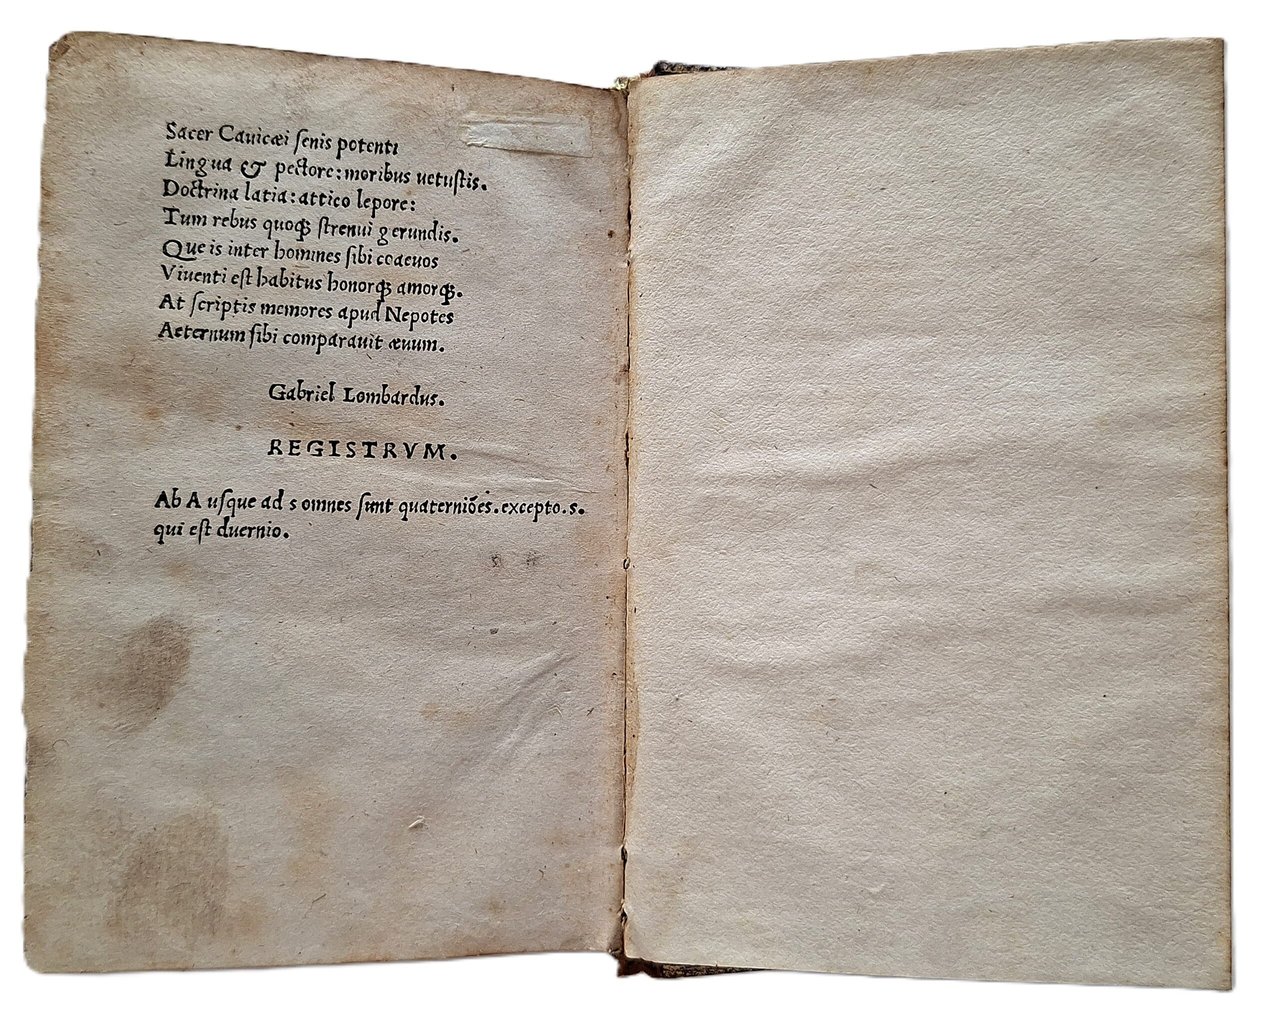 Sacer Cauicæi ſenis potenti
Lingua & pectore: moribus uetuſtis.
Doctrina latia: attico lepore:
Tum rebus quoqꝫ ſtrenui gerundis.
Que is inter homines ſibi coaeuos
Viuenti eſt habitus honorqꝫ amorqꝫ.
At ſcriptis memores apud Nepotes
Aeternum ſibi comparauit æuum.
Gabriel Lombardus.
REGISTRVM.
Ab A uſque ad s omnes ſunt quaterniões. excepto. s.
qui eſt duernio.